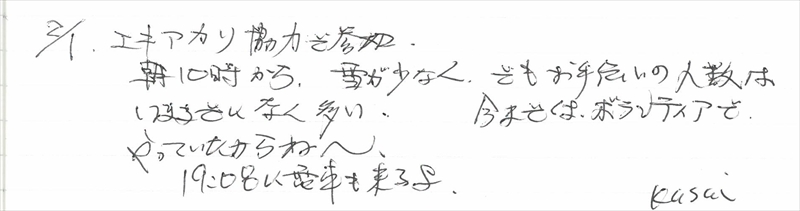 2/1. エキアカリ協力で参加.
朝10時から. 雪が少なく. でもお手伝いの人数は
いままでになく多い. 今まではボランティアで
やっていたからねへ、
19:08に電車も来るよ.
kasai